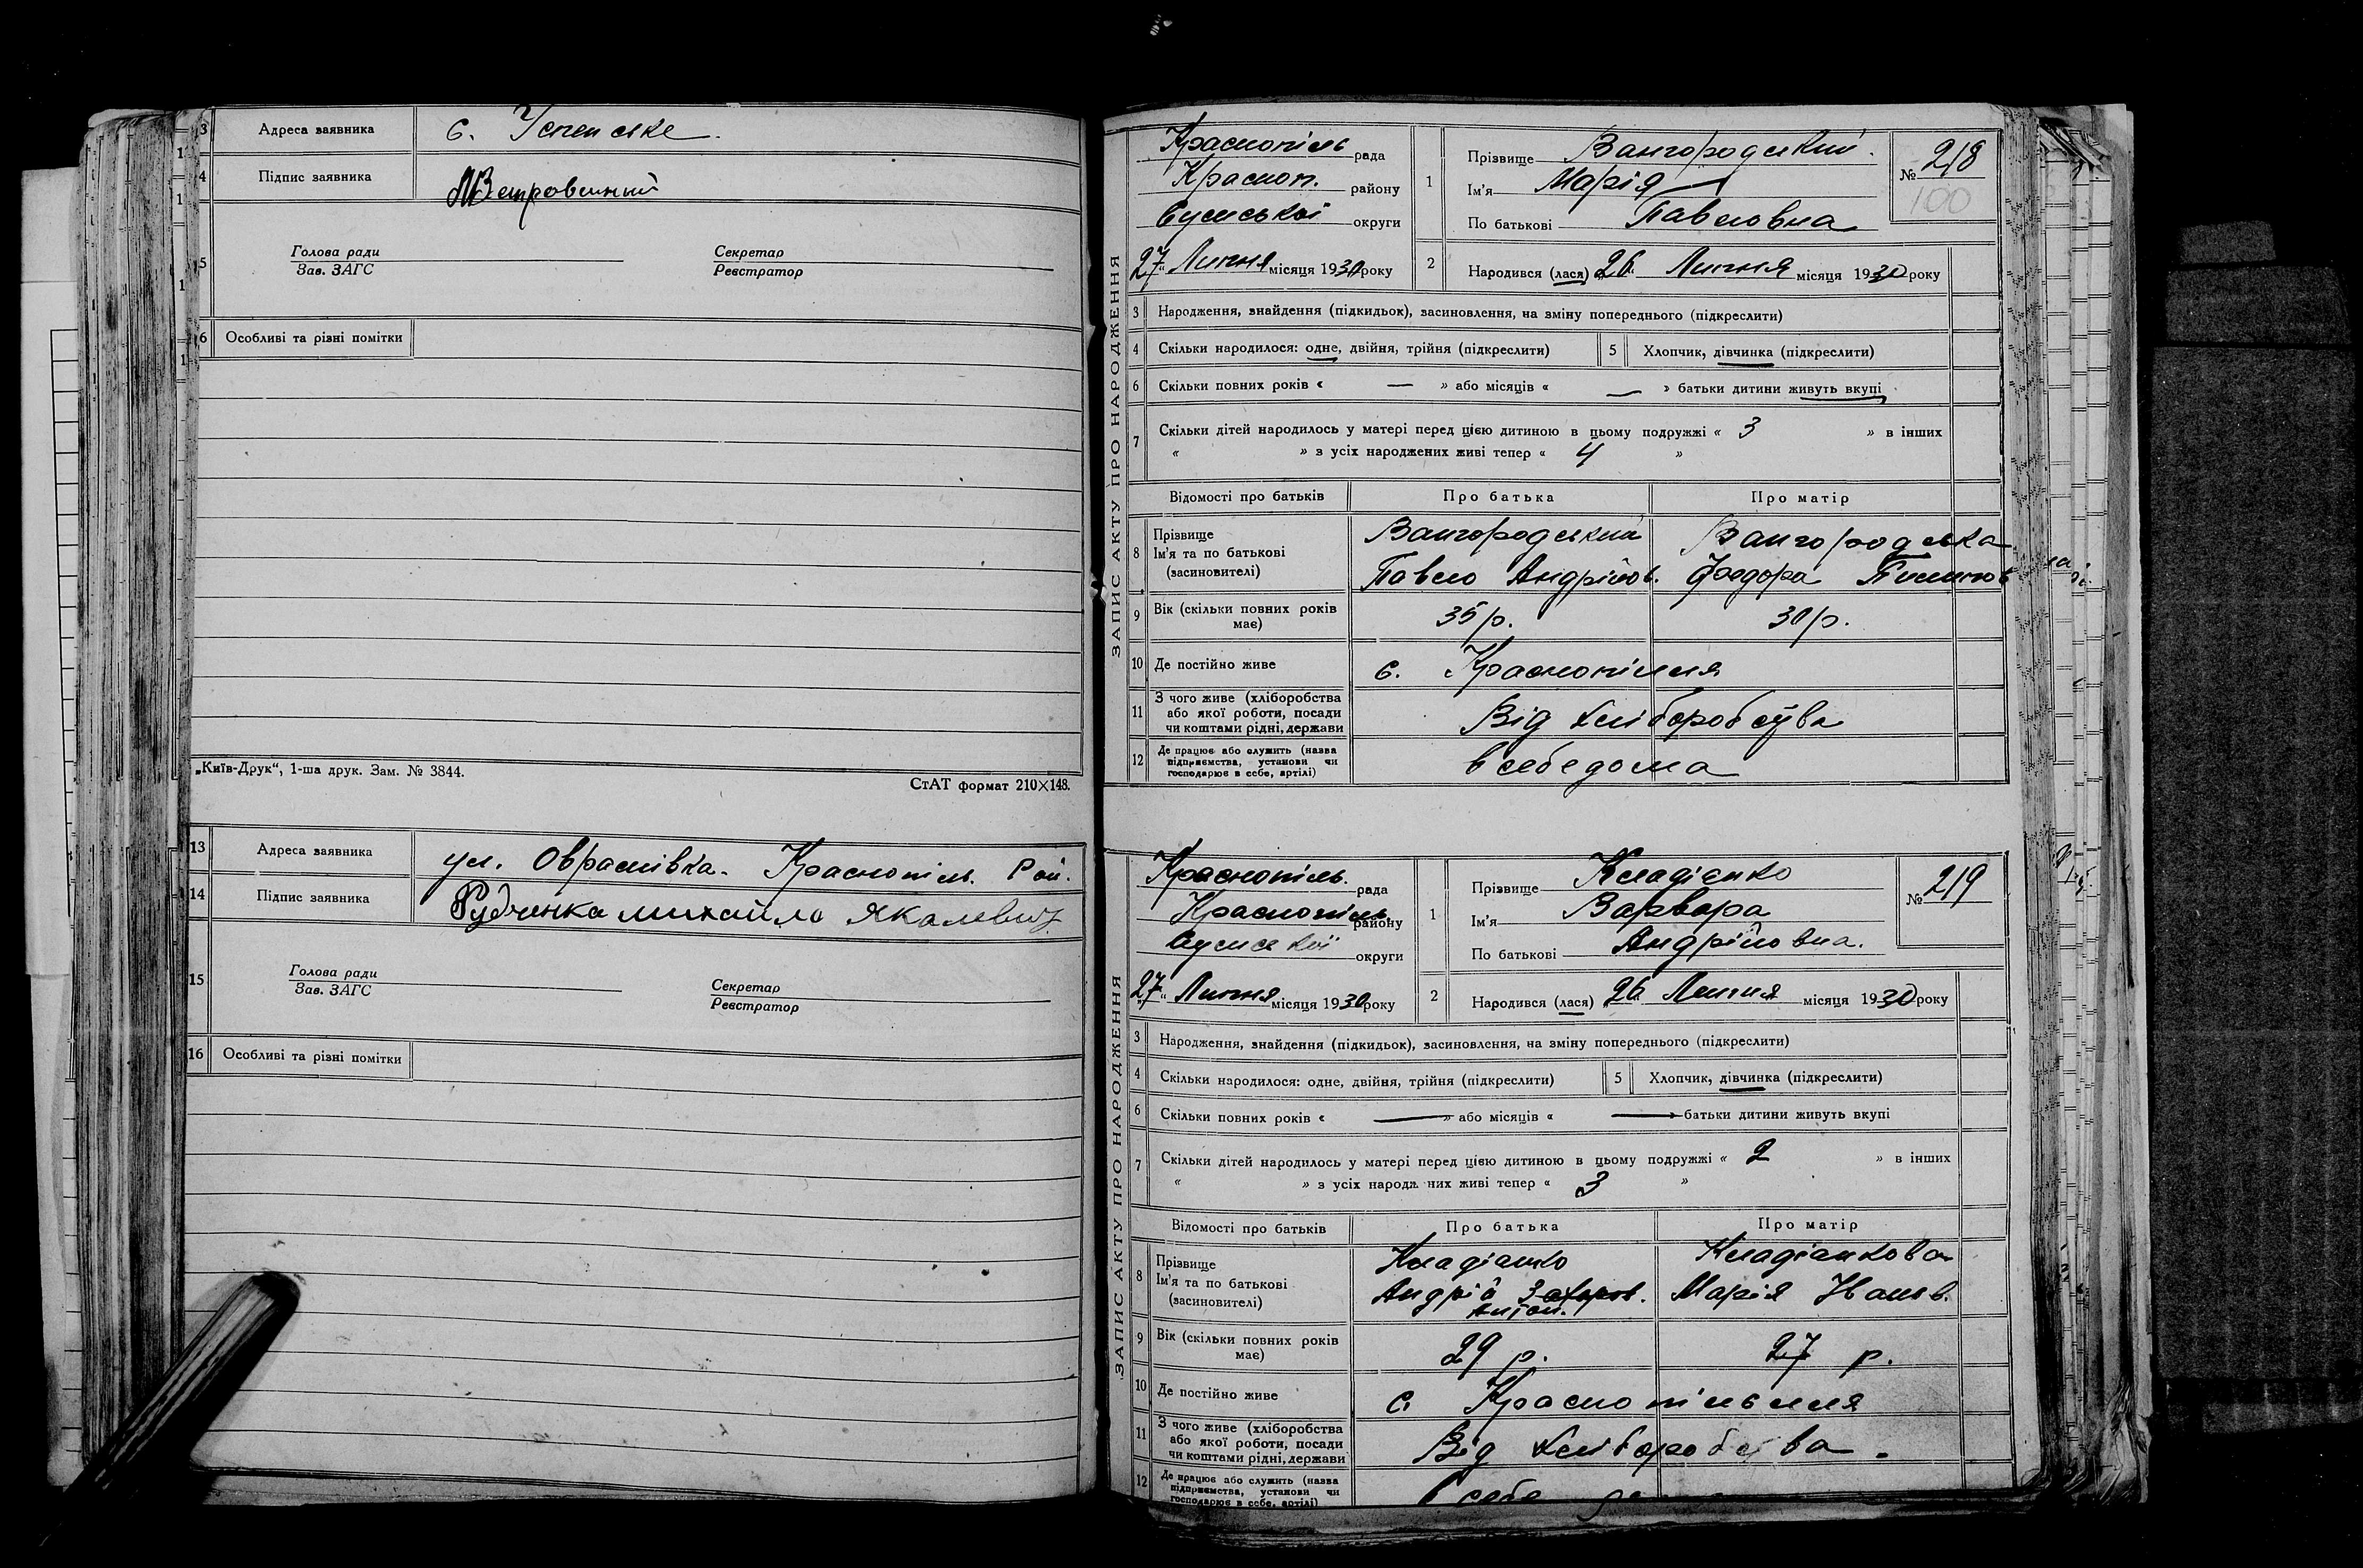 13 Адреса заявника с. Успенське.
14 Підпис заявника
15 Голова ради Секретар
Зав. ЗАГС Реєстратор
16 Особливі та різні помітки
„Київ-Друк“, 1-ша друк. Зам. № 3844.
СтАТ формат 210×148.
13 Адреса заявника Краснопіль. Рай.
14 Підпис заявника Рудченка михайло
15 Голова ради Секретар
Зав. ЗАГС Реєстратор
16 Особливі та різні помітки
ЗАПИС АКТУ ПРО НАРОДЖЕННЯ
Краснопіль рада
Красноп. району
Сумської округи
27 Липня місяця 1930 року
1 Прізвище Вангородський.
Ім'я Марія
По батькові Павловна
№ 218
100
2 Народився (лася) 26 Липня місяця 1930 року
3 Народження, знайдення (підкидьок), засиновлення, на зміну попереднього (підкреслити)
4 Скільки народилося: одне, двійня, трійня (підкреслити) 5 Хлопчик, дівчинка (підкреслити)
6 Скільки повних років « — » або місяців « — » батьки дитини живуть вкупі
7 Скільки дітей народилось у матері перед цією дитиною в цьому подружжі « 3 » в інших
« » з усіх народжених живі тепер « 4 »
Відомості про батьків Про батька Про матір
8 Прізвище Вангородський Вангородська
Ім'я та по батькові
(засиновителі) Павло Андрійов. Федора
9 Вік (скільки повних років має) 35 р. 30 р.
10 Де постійно живе с. Краснопілля
11 З чого живе (хліборобства
або якої роботи, посади
чи коштами рідні, держави Від хліборобства
12 Де працює або служить (назва
підприємства, установи чи
господарює в себе, артілі) в себе дома
ЗАПИС АКТУ ПРО НАРОДЖЕННЯ
Краснопіль. рада
Краснопіль. району
Сумської округи
27 Липня місяця 1930 року
1 Прізвище Кладіенко
Ім'я Варвара
По батькові Андрійовна.
№ 219
2 Народився (лася) 26 Липня місяця 1930 року
3 Народження, знайдення (підкидьок), засиновлення, на зміну попереднього (підкреслити)
4 Скільки народилося: одне, двійня, трійня (підкреслити) 5 Хлопчик, дівчинка (підкреслити)
6 Скільки повних років « — » або місяців « — батьки дитини живуть вкупі
7 Скільки дітей народилось у матері перед цією дитиною в цьому подружжі « 2 » в інших
« » з усіх народж них живі тепер « 3 »
Відомості про батьків Про батька Про матір
8 Прізвище
Ім'я та по батькові
(засиновителі) Андрій Марія Іванов.
9 Вік (скільки повних років має) 29 р. 27 р.
10 Де постійно живе с. Краснопільлля
11 З чого живе (хліборобства
або якої роботи, посади
чи коштами рідні, держави Від хліборобства.
12 Де працює або служить (назва
підприємства, установи чи
господарює в себе, артілі) в себе